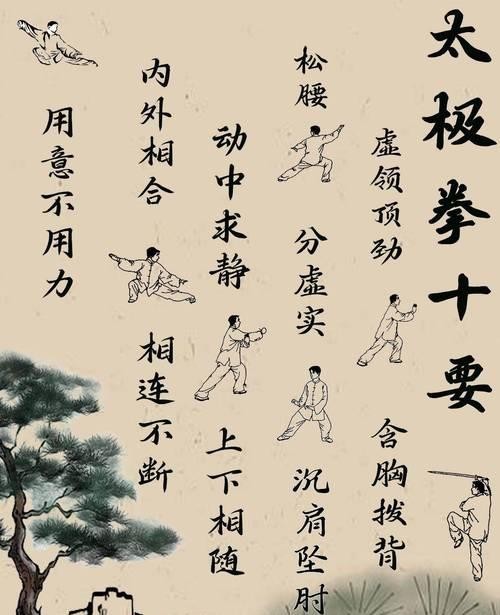 太极拳十要
虚领顶劲
含胸拨背
松腰
分虚实
沉肩坠肘
动中求静
上下相随
内外相合
相连不断
用意不用力